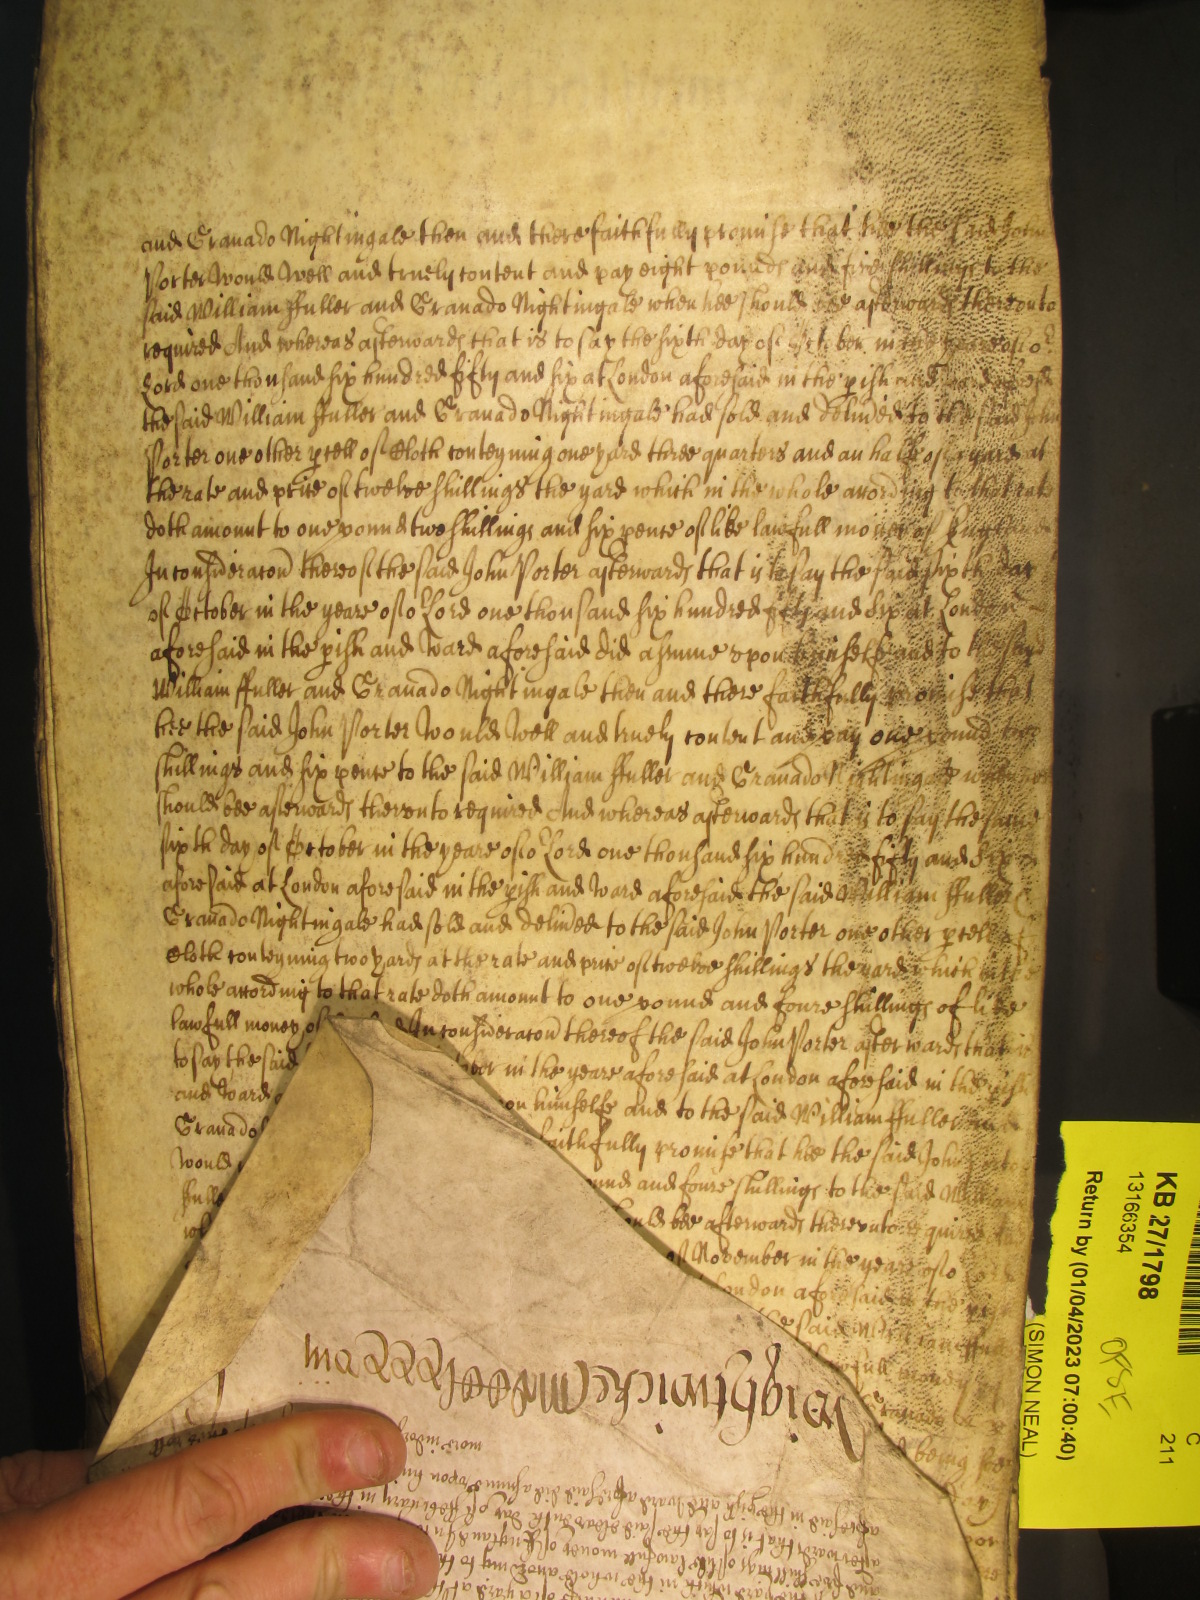 and Granado Nightingale then and there faithfully promise that hee the said John
Porter would well and truely content and pay eight pounds and five shillings to the
said William ffuller and Granado Nightingale when hee should bee afterwards thereunto
required And whereas afterwards that is to say the sixth day of October in the yeare of or
Lord one thousand six hundred fifty and six at London aforesaid in the pish and ward aforesaid
the said William ffuller and Granado Nightingale had sold and delived to the said John
Porter one other pcell of Cloth conteyning one yard three quarters and an halfe of a yard at
the rate and price of twelve shillings the yard which in the whole according to that rate
doth amount to one pound two shillings and six pence of like lawfull money of England
In consideracon thereof the said John Porter afterwards that is to say the said sixth day
of October in the yeare of or Lord one thousand six hundred fifty and six at London
aforesaid in the pish and ward aforesaid did assume upon himselfe and to the said
William ffuller and Granado Nightingale then and there faithfully promise that
hee the said John Porter would well and truely content and pay one pound two
shillings and six pence to the said William ffuller and Granado Nightingale when hee
should bee afterwards thereunto required And whereas afterwards that is to say the same
sixth day of October in the yeare of or Lord one thousand six hundred fifty and six
aforesaid at London aforesaid in the pish and ward aforesaid the said William ffuller &
Granado Nightingale had sold and delived to the said John Porter one other pcell of
Cloth conteyning two yards at the rate and price of twelve shillings the yard which in the
whole according to that rate doth amount to one pound and foure shillings of like
lawfull money of In consideracon thereof the said John Porter afterwards that is
to say the said ober in the yeare aforesaid at London aforesaid in the pish
and ward on himselfe and to the said William ffuller and
Granado faithfully promise that hee the said John Porter
would ound and foure shillings to the said William
ffulle ould bee afterwards thereunto required
of November in the yeare of or
London aforesaid in the pish
the said William ffuller
lawfull money of
Granado
being
Wrightwick
more indor
aforesaid in the pish and ward aforesaid did assume upon him
afterwards that is to say the said eleaventh day of February in the
and five shillings of like lawfull money of England In
the yard which in the whole according to th
KB 27/1798
13166354
Return by (01/04/2023 07:00:40)
(SIMON NEAL)
C
211